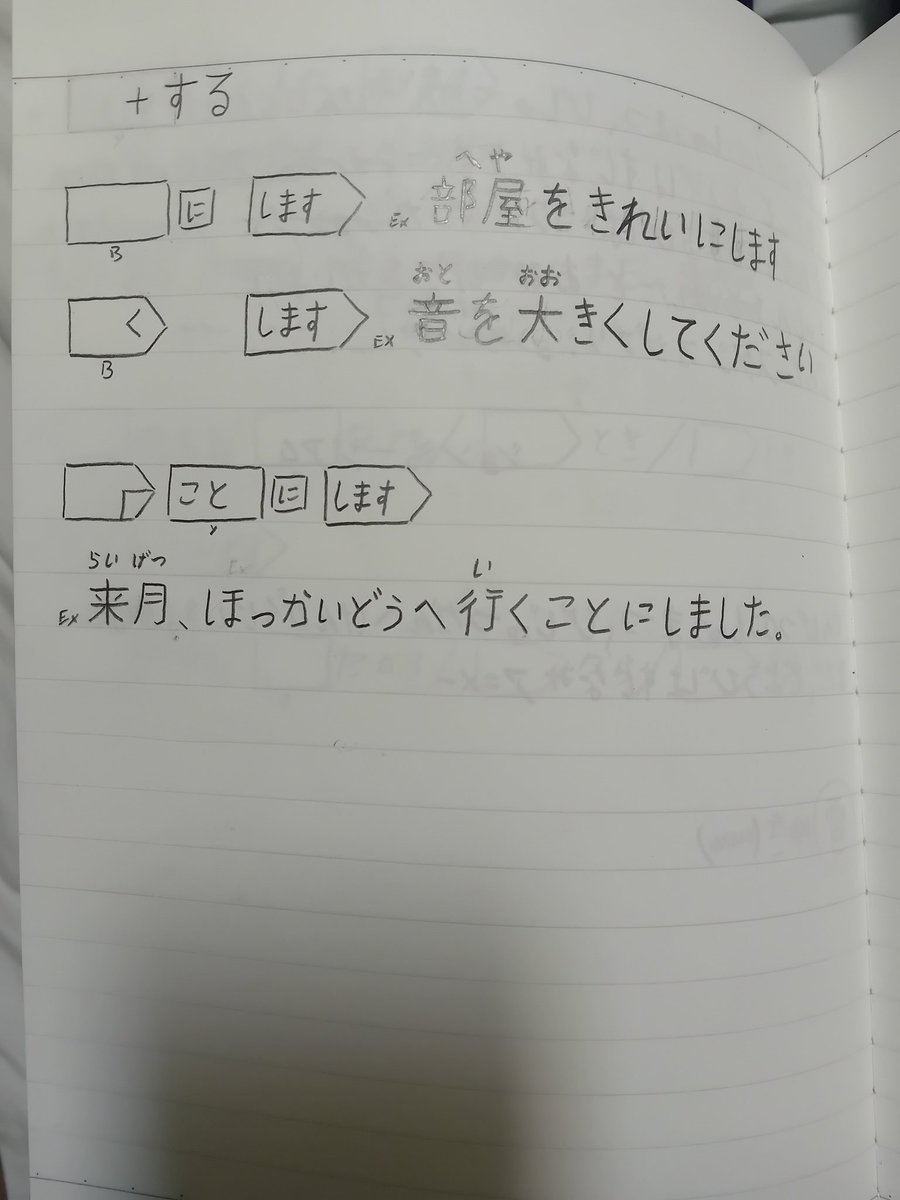 +する
に します Ex 部屋をきれいにします
へや
B
く します Ex 音を大きくしてください
おと おお
B
こと に します
らいげつ い
Ex 来月、ほっかいどうへ行くことにしました。